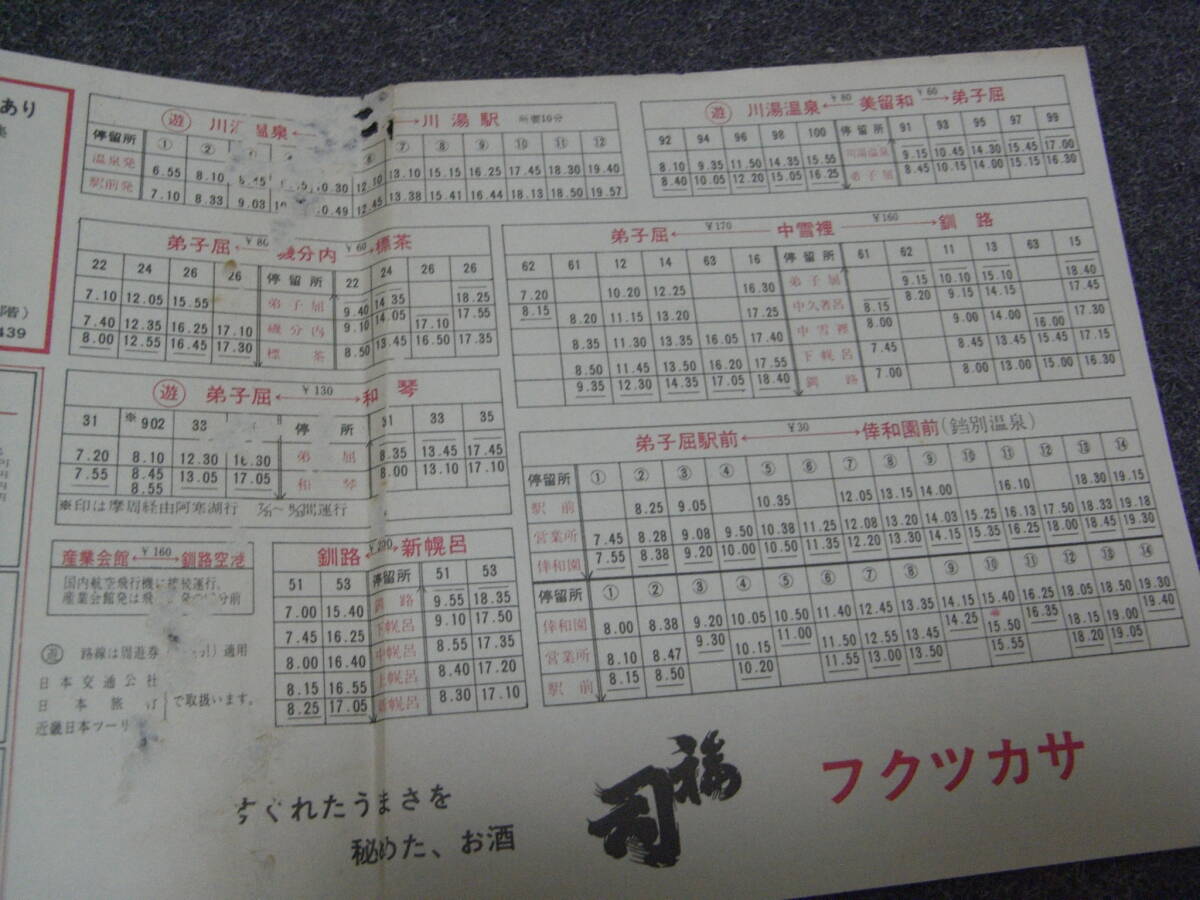 あり
階）
439
遊 川湯温泉 ← → 川湯駅 所要10分
停留所 ① ② ⑦ ⑧ ⑨ ⑩ ⑪ ⑫
温泉発 6.55 8.10 10.30 12.10 13.10 15.15 16.25 17.45 18.30 19.40
駅前発 7.10 8.33 9.03 12.45 13.38 15.41 16.44 18.13 18.50 19.57
遊 川湯温泉 ←¥80 美留和 ¥60→ 弟子屈
92 94 96 98 100 停留所 91 93 95 97 99
8.10 9.35 11.50 14.35 15.55 川湯温泉 9.15 10.45 14.30 15.45 17.00
8.40 10.05 12.20 15.05 16.25 弟子屈 8.45 10.15 14.00 15.15 16.30
弟子屈 ←¥80 磯分内 ¥60→ 標茶
22 24 26 26 停留所 22 24 26 26
7.10 12.05 15.55 弟子屈 9.40 14.35 18.25
7.40 12.35 16.25 17.10 磯分内 9.10 14.05 17.10 17.55
8.00 12.55 16.45 17.30 標茶 8.50 13.45 16.50 17.35
弟子屈 ←¥170 中雪裡 ¥160→ 釧路
62 61 12 14 63 16 停留所 61 62 11 13 63 15
7.20 10.20 12.25 16.30 弟子屈 9.15 10.10 15.10 18.40
8.15 8.20 11.15 13.20 17.25 中久著呂 8.15 8.20 9.15 14.15 17.45
8.35 11.30 13.35 16.05 17.40 中雪裡 8.00 9.00 14.00 16.00 17.30
8.50 11.45 13.50 16.20 17.55 下幌呂 7.45 8.45 13.45 15.45 17.15
9.35 12.30 14.35 17.05 18.40 釧路 7.00 8.00 13.00 15.00 16.30
遊 弟子屈 ←¥130→ 和琴
31 ※902 33 停 所 31 33 35
7.20 8.10 12.30 16.30 弟 屈 8.35 13.45 17.45
7.55 8.45 13.05 17.05 和琴 8.00 13.10 17.10
8.55
※印は摩周経由阿寒湖行 間運行
弟子屈駅前 ←¥30→ 倖和園前(鐺別温泉)
停留所 ① ② ③ ④ ⑤ ⑥ ⑦ ⑧ ⑨ ⑩ ⑪ ⑫ ⑬ ⑭
駅前 8.25 9.05 10.35 12.05 13.15 14.00 16.10 18.30 19.15
営業所 7.45 8.28 9.08 9.50 10.38 11.25 12.08 13.20 14.03 15.25 16.13 17.50 18.33 19.18
倖和園 7.55 8.38 9.20 10.00 10.50 11.35 12.20 13.30 14.15 15.35 16.25 18.00 18.45 19.30
停留所 ① ② ③ ④ ⑤ ⑥ ⑦ ⑧ ⑨ ⑩ ⑪ ⑫ ⑬ ⑭
倖和園 8.00 8.38 9.20 10.05 10.50 11.40 12.45 13.35 14.15 15.40 16.25 18.05 18.50 19.30
営業所 8.10 8.47 9.30 10.15 11.00 11.50 12.55 13.45 14.25 15.50 16.35 18.15 19.00 19.40
駅前 8.15 8.50 10.20 11.55 13.00 13.50 15.55 18.20 19.05
産業会館 ←¥160→ 釧路空港
国内航空飛行機に接続運行。
産業会館発は飛 発の 分前
釧路 新幌呂
51 53 停留所 51 53
7.00 15.40 釧路 9.55 18.35
7.45 16.25 下幌呂 9.10 17.50
8.00 16.40 中幌呂 8.55 17.35
8.15 16.55 上幌呂 8.40 17.20
8.25 17.05 新幌呂 8.30 17.10
遊 路線は周遊券 適用
日本交通公社
日本旅行 で取扱います。
近畿日本ツーリ
すぐれたうまさを
秘めた、お酒
福司
フクツカサ